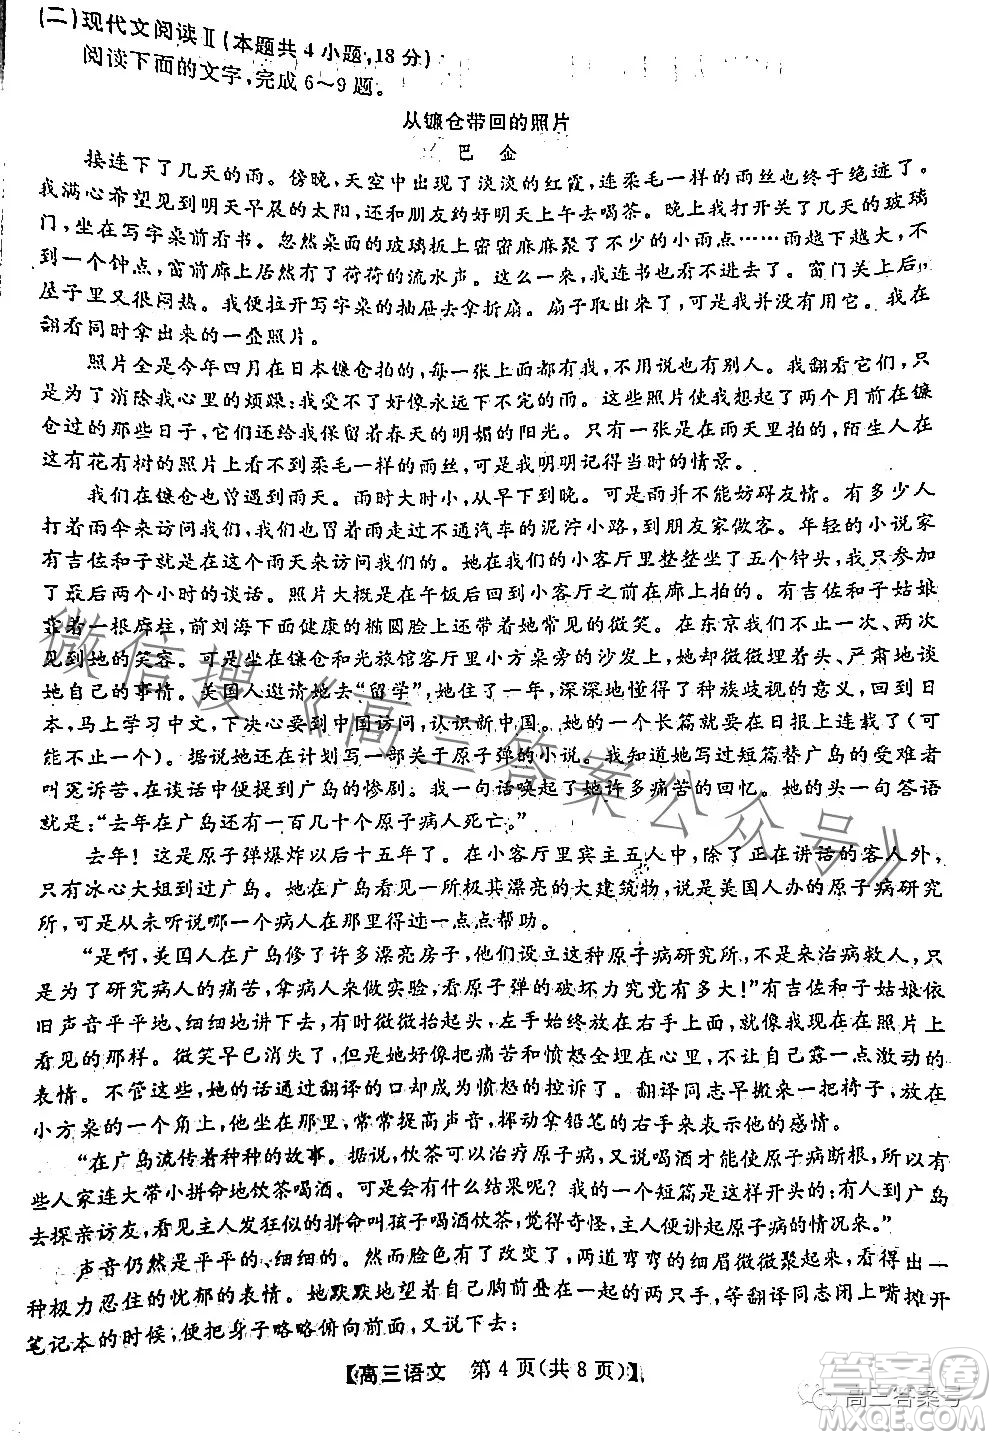 (二)现代文阅读Ⅱ(本题共4小题,18分)
阅读下面的文字,完成6～9题。
从镰仓带回的照片
巴 金
接连下了几天的雨。傍晚,天空中出现了淡淡的红霞,连柔毛一样的雨丝也终于绝迹了。
我满心希望见到明天早晨的太阳,还和朋友约好明天上午去喝茶。晚上我打开关了几天的玻璃
门,坐在写字桌前看书。忽然桌面的玻璃板上密密麻麻聚了不少的小雨点……雨越下越大,不
到一个钟点,窗前廊上居然有了荷荷的流水声。这么一来,我连书也看不进去了。窗门关上后,
屋子里又很闷热。我便拉开写字桌的抽屉去拿折扇。扇子取出来了,可是我并没有用它。我在
翻看同时拿出来的一叠照片。
照片全是今年四月在日本镰仓拍的,每一张上面都有我,不用说也有别人。我翻看它们,只
是为了消除我心里的烦躁:我受不了好像永远下不完的雨。这些照片使我想起了两个月前在镰
仓过的那些日子,它们还给我保留着春天的明媚的阳光。只有一张是在雨天里拍的,陌生人在
这有花有树的照片上看不到柔毛一样的雨丝,可是我明明记得当时的情景。
我们在镰仓也曾遇到雨天。雨时大时小,从早下到晚。可是雨并不能妨碍友情。有多少人
打着雨伞来访问我们,我们也曾冒雨走过不通汽车的泥泞小路,到朋友家做客。年轻的小说家
有吉佐和子就是在这个雨天来访问我们的。她在我们的小客厅里整整坐了五个钟头,我只参加
了最后两个小时的谈话。照片大概是在午饭后回到小客厅以前在廊上拍的。有吉佐和子姑娘
靠着一根廊柱,前刘海下面健康的椭圆脸上还带着她常见的微笑。在东京我们不止一次、两次
见到她的笑容。可是在镰仓和光旅馆客厅里小方桌旁的沙发上,她却微微埋着头、严肃地谈
她自己的事情。美国人邀请她去“留学”,她住了一年,深深地懂得了种族歧视的意义,回到日
本,马上学习中文,下决心要到中国访问,认识新中国。她的一个长篇就要在日报上连载了(可
能不止一个)。据说她还在计划写一部关于原子弹的小说。我知道她写过短篇替广岛的受难者
叫冤诉苦,在谈话中便提到广岛的惨剧。我一句话唤起了她许多痛苦的回忆。她的头一句答语
就是:“去年在广岛还有一百几十个原子病人死亡。”
去年！这是原子弹爆炸以后十五年了。在小客厅里宾主五人中,除了正在讲话的客人外,
只有冰心大姐到过广岛。她在广岛看见一所极其漂亮的大建筑物,说是美国人办的原子病研究
所,可是从未听说哪一个病人在那里得过一点点帮助。
“是啊,美国人在广岛修了许多漂亮房子,他们设立这种原子病研究所,不是来治病救人,只
是为了研究病人的痛苦,拿病人来做实验,看原子弹的破坏力究竟有多大！”有吉佐和子姑娘依
旧声音平平地、细细地讲下去,有时微微抬起头,左手始终放在右手上面,就像在照片上
看见的那样。微笑早已消失了,但是她好像把痛苦和愤怒全埋在心里,不让自己露一点激动的
表情。不管这些,她的话通过翻译的口却成为愤怒的控诉了。翻译同志早搬来一把椅子,坐在
小方桌的一个角上,他好像忍不住心里的激动,常常提高声音,挥动拿铅笔的右手来表示她的感情。
“在广岛流传着种种的故事。据说,饮茶可以治疗原子病,又说喝酒就能够使原子病断根,有
些人家连大带小拼命地饮茶喝酒。可是会有什么结果呢?我的一个短篇是这样开头的:有人到广岛
去探亲访友,看见主人发狂似的拼命叫孩子喝酒饮茶,觉得奇怪,主人便讲起原子病的情况来。”
声音仍然是平平的、细细的。然而脸色有了改变了,两道弯弯的细眉微微聚起来,看得出一
种极力忍住的忧郁的表情。她默默地望着自己胸前叠在一起的两只手,等翻译同志闭上嘴摊开
笔记本的时候,便把身子略略俯向前面,又说下去:
【高三语文 第4页(共8页)】
微信搜《高三答案公众号》
高三答案号
答案圈
MXQE.COM